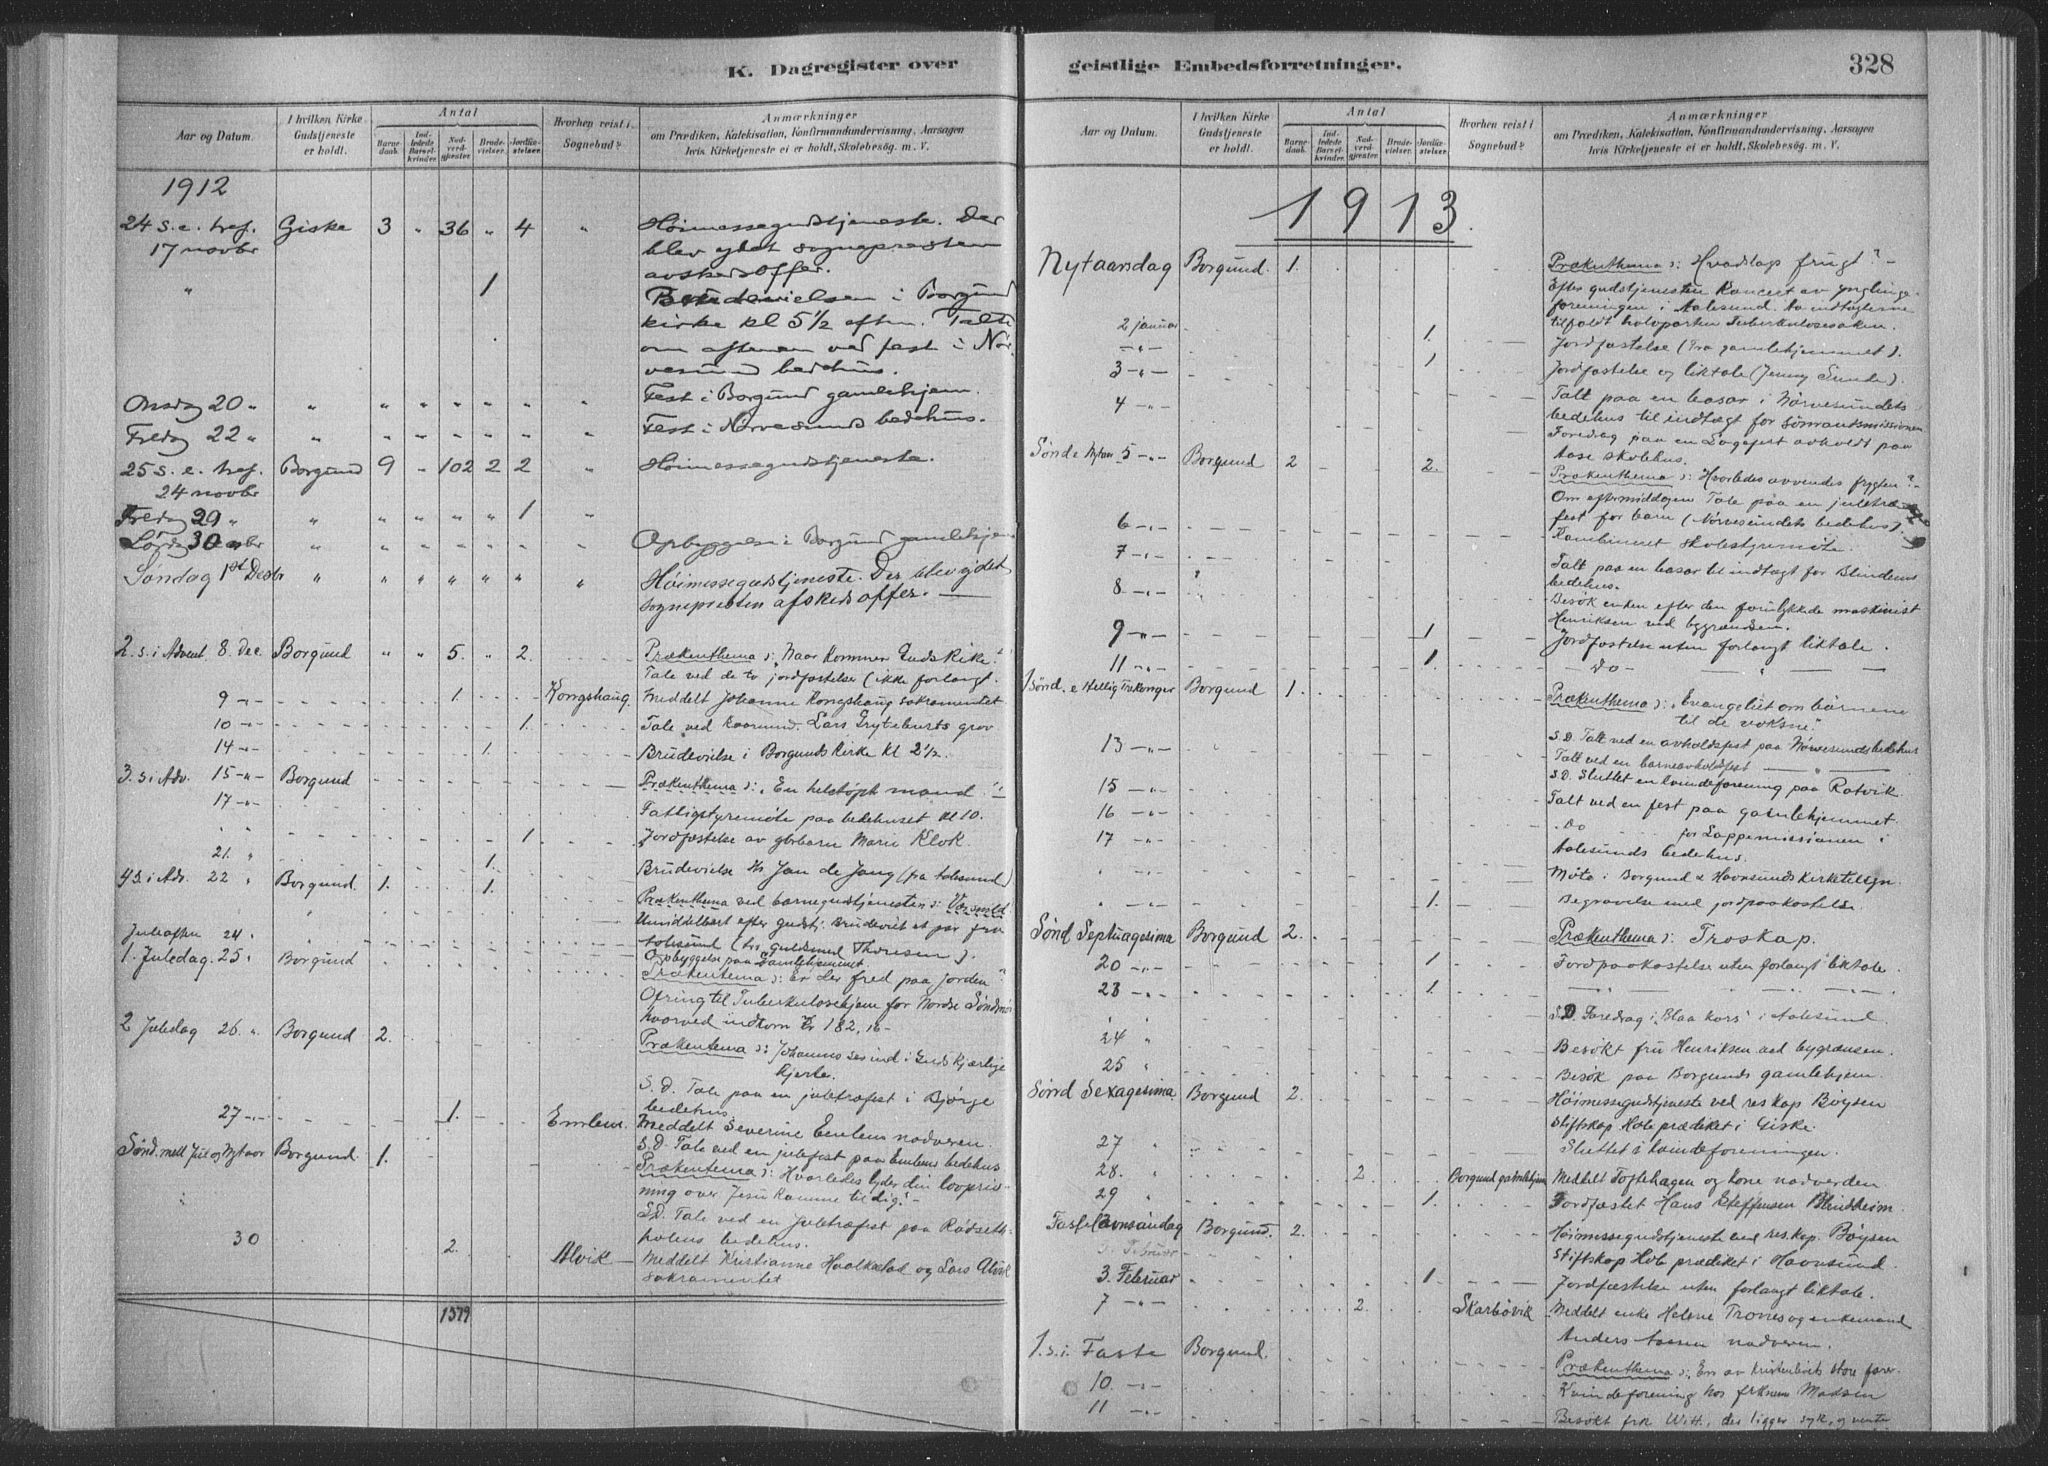 K. Dagregister over
Aar og Datum.
I hvilken Kirke Gudstjeneste er holdt.
Antal
Barnedaab.
Indledede Barselkvinder.
Nadverdgjester
Brudevielser.
Jordfæstelser.
Hvorhen reist i Sognebud?
Anmærkninger
om Prædiken, Katekisation, Konfirmandundervisning, Aarsagen
hvis Kirketjeneste ei er holdt, Skolebesøg. m. V.
1912
24 s. e. tref. Giske 3 " 36 " 4 " Höimessegudstjeneste. Der
17 novbr blev ydet sognepresten
avskedsoffer.
" 1 Brudevielsen i Borgund
kirke kl 5½ eftm. Talte
om aftenen ved fest i Nör-
vesund bedehus.
Onsdag 20 " " " " " " " " Fest i Borgund gamlehjem.
Fredag 22 " " " " " " " " Fest i Nörvesund bedehus.
25 s. e. tref. Borgund 9 " 102 2 2 " Höimessegudstjeneste.
24 novbr
Fredag 29 " " " " " " 1 "
Lördag 30 " " " " " " " Opbyggelse i Borgund gamlehjem
Söndag 1st Decbr " " " " " " " Höimessegudstjeneste. Der blev ydet
sognepresten afskedsoffer.
2. s. i Advent 8. Dec. Borgund " " 5. " 2. Prækenthema: "Naar kommer Guds Rike?"
Tale ved de to jordfæstelser (ikke forlangt.
9 -"- 1. Kongshaug. Meddelt Johanne Kongshaug sakramentet
10 -"- 1. Tale ved Lars Gryteburts grav
14 -"- 1. Brudevielse i Borgunds kirke kl 2½.
3. s. i Adv. 15 -"- Borgund Prækenthema: "En helstöpt mand."
17 -"- Fattigstyremöte paa bedehuset kl 10.
" " 1. Jordfæstelse av Marie Klok.
21. " 1. Brudevielse Hr Jan de Jong (fra Aalesund)
4 s. i Adv. 22 " Borgund. 1. 1. Prækenthema ved barnegudstjenesten:
Umiddelbart efter gudstj. brudeviet et par fra
Juleaften 24 " Aalesund (hr. guldsmed Thoresen).
Opbyggelse paa Gamlehjemmet
1. Juledag. 25 " Borgund Prækentema: Er der fred paa jorden?
Ofring til Tuberkulosehjem for Nordre Söndmör
hvorved indkom Kr 182,16-
2 Juledag 26. " Borgund 2. Prækentema: Johannes ser ind i Guds kjærlige
hjerte.
S. D. Tale paa en juletræfest i Bjørge
bedehus.
27 -"- 1. Emlem. Meddelt Severine Emlem nadveren.
S. D. Tale ved en julefest paa Emlems bedehus
Sönd. mell Jul og Nytaar Borgund. 1. Prækentema: Hvorledes lyder din lovpris-
ning over Jesu komme til dig?
S. D. Tale ved en Juletræfest paa Rödseth-
holens bedehus.
30 2. Alvik Meddelt Kristianne og Lars Alvik
sakramentet
1579
geistlige Embedsforretninger. 328
Aar og Datum.
I hvilken Kirke Gudstjeneste er holdt.
Antal
Barnedaab.
Indledede Barselkvinder.
Nadverdgjester
Brudevielser.
Jordfæstelser.
Hvorhen reist i Sognebud?
Anmærkninger
om Prædiken, Katekisation, Konfirmandundervisning, Aarsagen
hvis Kirketjeneste ei er holdt, Skolebesøg. m. V.
1913.
Nytaarsdag Borgund. 1. Prækenthema: Hvadslags frugt?
Efter gudstjenesten Koncert av ynglinge-
foreningen i Aalesund. Av indtægterne
tilfaldt halvparten Tuberkulosesaken.
2 januar 1. Jordfæstelse (fra gamlehjemmet).
-"- 1 Jordfæstelse og liktale (Jenny Sunde).
3 -"- Talt paa en basar i Nörvesundets
bedehus til indtægt for Sönrandsmissionen
4 -"- Foredrag paa en Logefest avholdt paa
Aase skolehus.
Sønde. Nytaar 5 -"- Borgund 2 2. Prækenthema: Hvorledes avvendes frygten?
Om eftermiddagen Tale paa en juletræ-
fest for barn (Nörvesundets bedehus).
6 -"- Kombineret skolestyremöte.
7 -"- Talt paa en basar til indtægt for Blindems
bedehus.
8 -"- Besök enken efter den forulykkede maskinist
Henriksen ved bygrændsen.
9 -"- 1. Jordfæstelse uten forlangt liktale.
11 -"- 1. Do
1 Sönd. e Hellig Trekonger Borgund 1. Prækenthema: "Evangeliet om börnene
til de voksne".
S. D. Talt ved en avholdsfest paa Nörvesunds bedehus
13 -"- Talt ved en barneavholdsfest
S. D. Sluttet en kvindeforening paa Ratvik
15 -"- Talt ved en fest paa gamlehjemmet.
16 -"- Do for Lappemissionen i
17 -"- Aalesunds bedehus.
Möte i Borgund & Havnsunds kirketilsyn
1. Begravelse med jordpaakastelse.
Sønd Septuagesima Borgund 2. Prækenthema: Troskap.
20 -"- 1 Jordpaakastelse uten forlangt liktale.
23 -"- 1. -"-
" " S. D. Foredrag i "Blaa Kors" i Aalesund.
24 " Besökt fru Henriksen ved bygrænsen.
25 " Besök paa Borgunds gamlehjem.
Sönd Sexagesima Borgund 2. Höimessegudstjeneste ved res kap Boysen
Stiftskap Hole prædiket i Giske.
27 " Sluttet i kvindeforeningen.
28. " 2. Borgund gamlehjem Meddelt Toftehagen og kone nadverden
29 " 1. Jordfæstet Hans Steffensen Blindheim.
Fastelavnsöndag Borgund. 2. Höimessegudstjeneste ved res. kap. Böysen
Stiftskap Hole prædiket i Havnsund.
3. Februar 1. Jordfæstelse uten forlangt liktale.
7 -"- 2. Skarbövik Meddelt enke Helene og enkemand
Anders Aasen nadveren.
1. s. i. Faste Borgund. Prækenthema: En av Kristenlivets store farer
10. -"- Kvindeforening hos Madsen
11 -"- Besökt frk Witt, der ligger syk, og